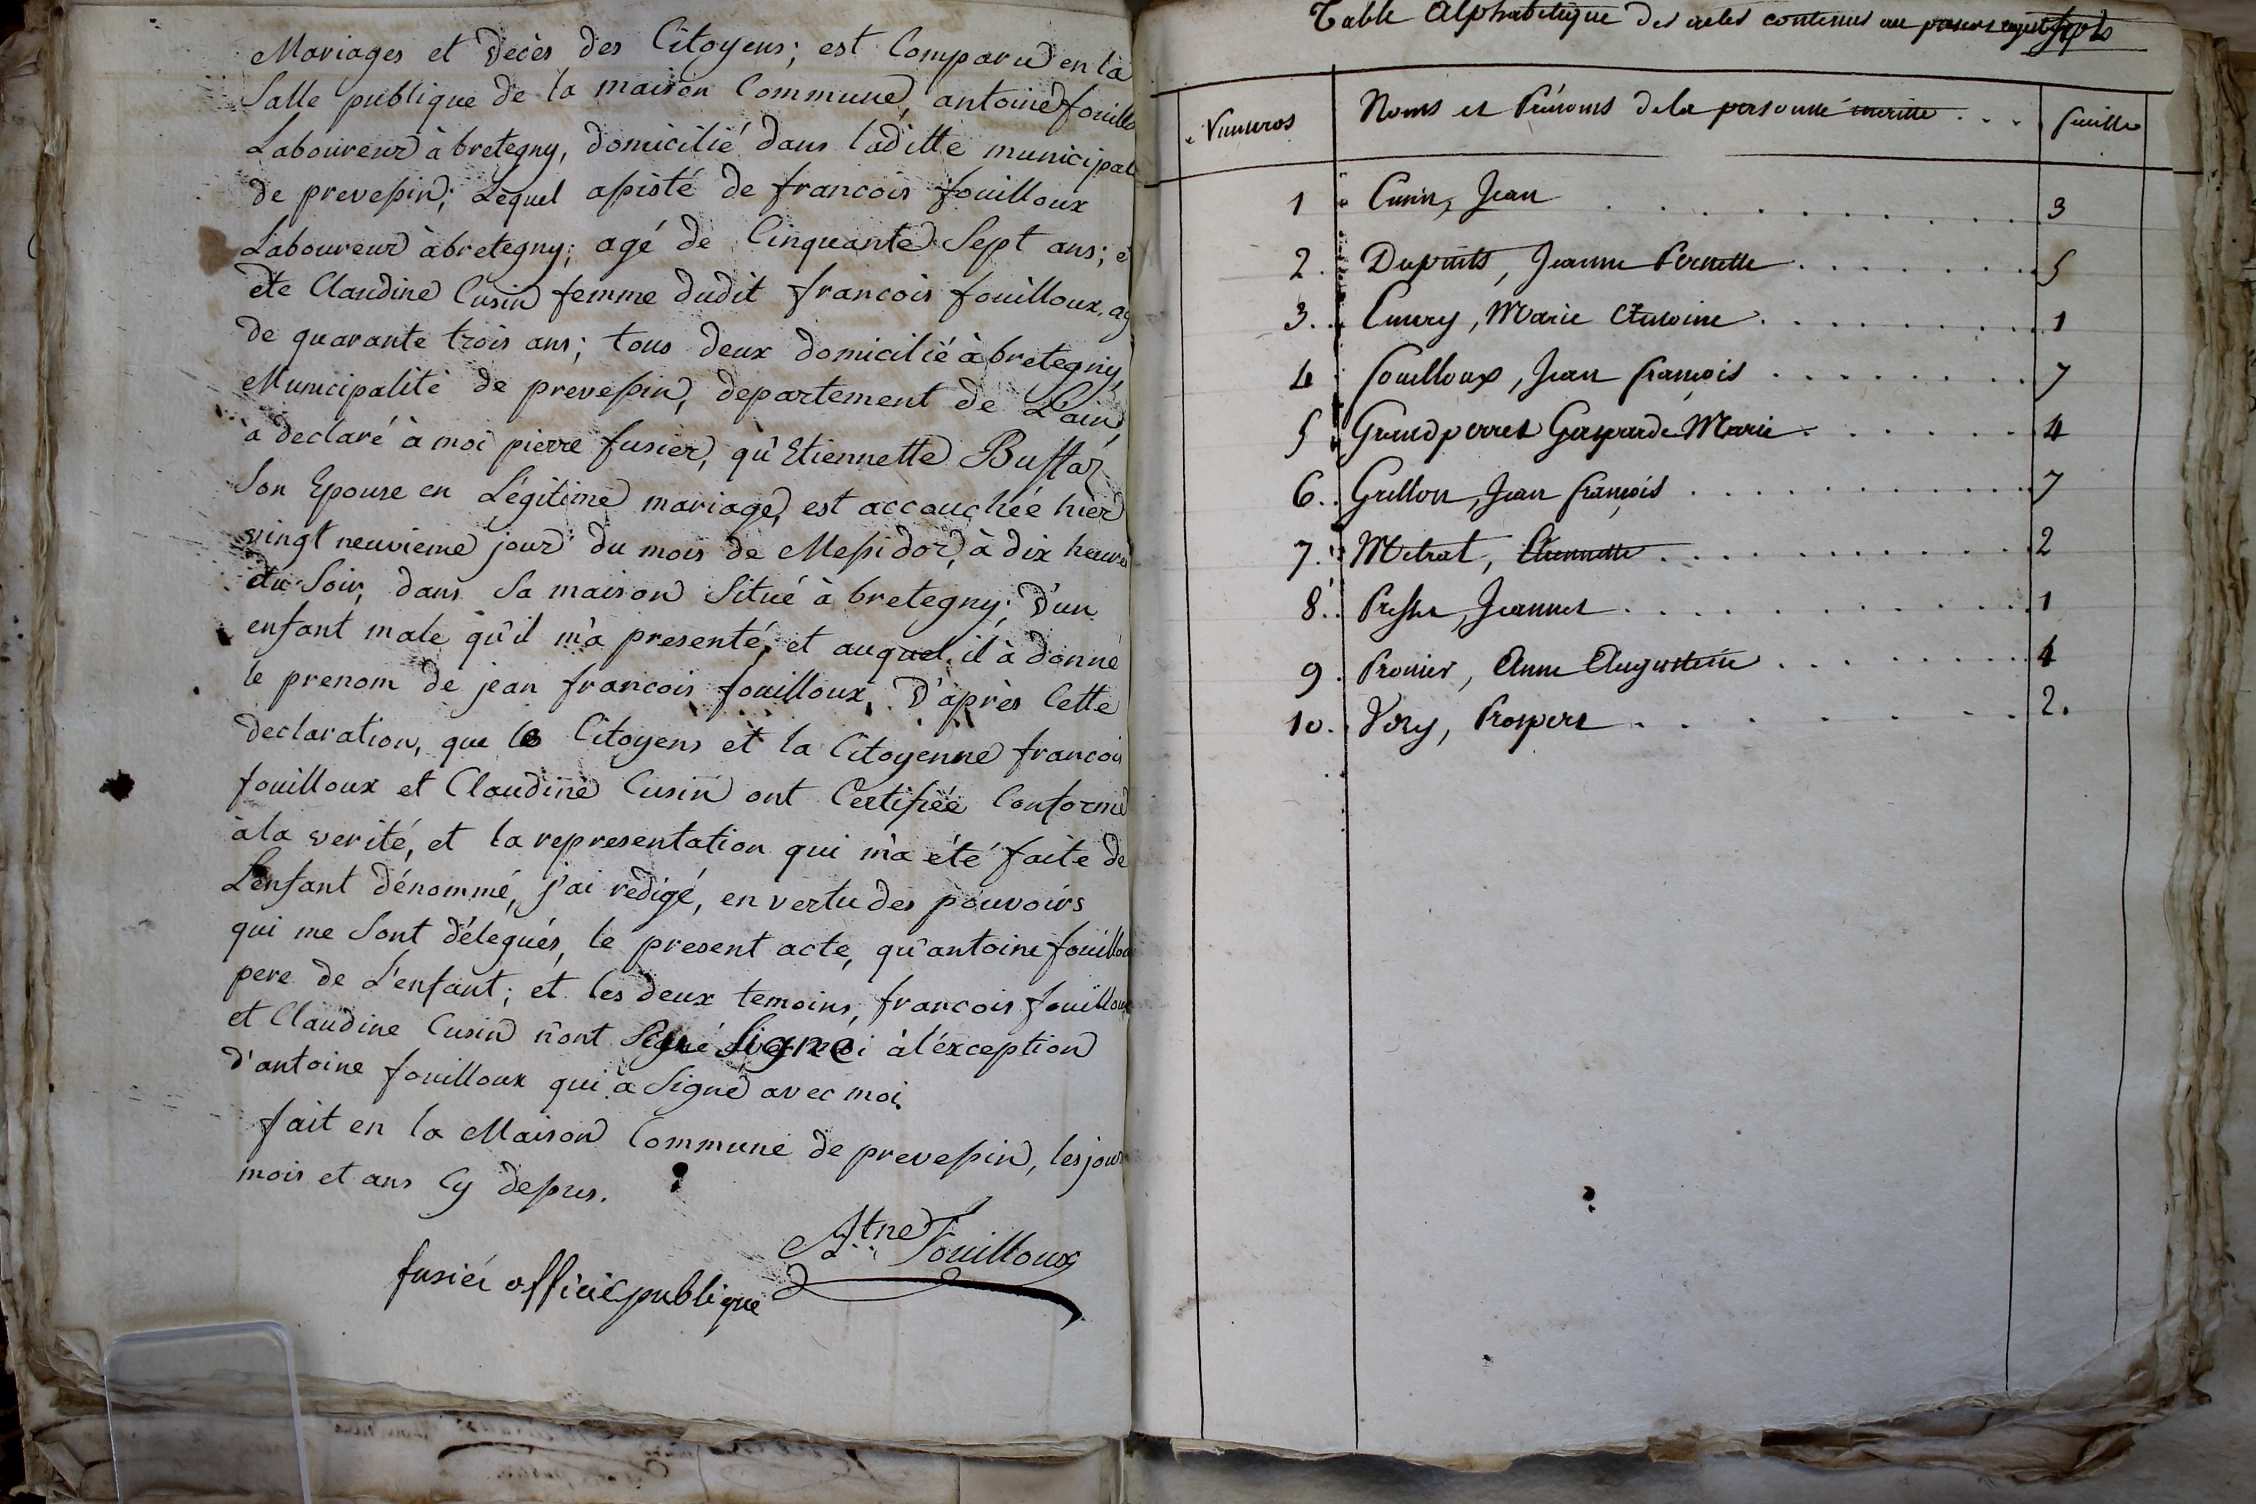 Mariages et Decès des Citoyens; est Comparu en la
Salle publique de la maison Commune, antoine fouillo
Laboureur à bretegny, domicilié dans laditte municipal
de prevessin; Lequel assisté de francois fouilloux
Laboureur à bretegny; agé de Cinquante Sept ans; e
de Claudine Cusin femme dudit francois fouilloux, ag
de quarante trois ans; tous deux domicilié à bretegny
Municipalité de prevessin, departement de Lain
à declaré à moi pierre fusier, qu'Etiennette Buffaz
Son Epouse en Légitime mariage, est accouchée hier
vingt neuvieme jour du mois de Messidor, à dix heures
du Soir, dans Sa maison Situé à bretegny; D'un
enfant male qu'il m'a presenté, et auquel il à donné
le prenom de jean francois fouilloux, D'après Cette
declaration, que les Citoyens et la Citoyenne francois
fouilloux et Claudine Cusin ont Certifiée Conforme
à la verité, et la representation qui m'a été faite de
L'enfant dénommé, j'ai redigé, en vertu des pouvoirs
qui me Sont délegués, le present acte, qu'antoine fouillou
pere de L'enfant; et les deux temoins, francois fouilloux
et Claudine Cusin n'ont Signé à l'éxception
d'antoine fouilloux qui à Signé avec moi
fait en la Maison Commune de prevessin, les jour
mois et ans Cy dessus.
Atne Fouilloux
fusier officie publique
Table Alphabetique des actes contenus au
Numeros Noms et Prénoms de la personne feuille
1 Cusin, Jean 3
2 Dupuits, Jeanne Pernette 5
3 Emery, Marie Antoine 1
4 Fouilloux, Jean françois 7
5 Grandperret Gasparde Marie 4
6 Grillon, Jean françois 7
7 Metrat, Etiennette 2
8 Jeannet 1
9 Pronier, Anne Augustine 4
10 Very, Prospere 2